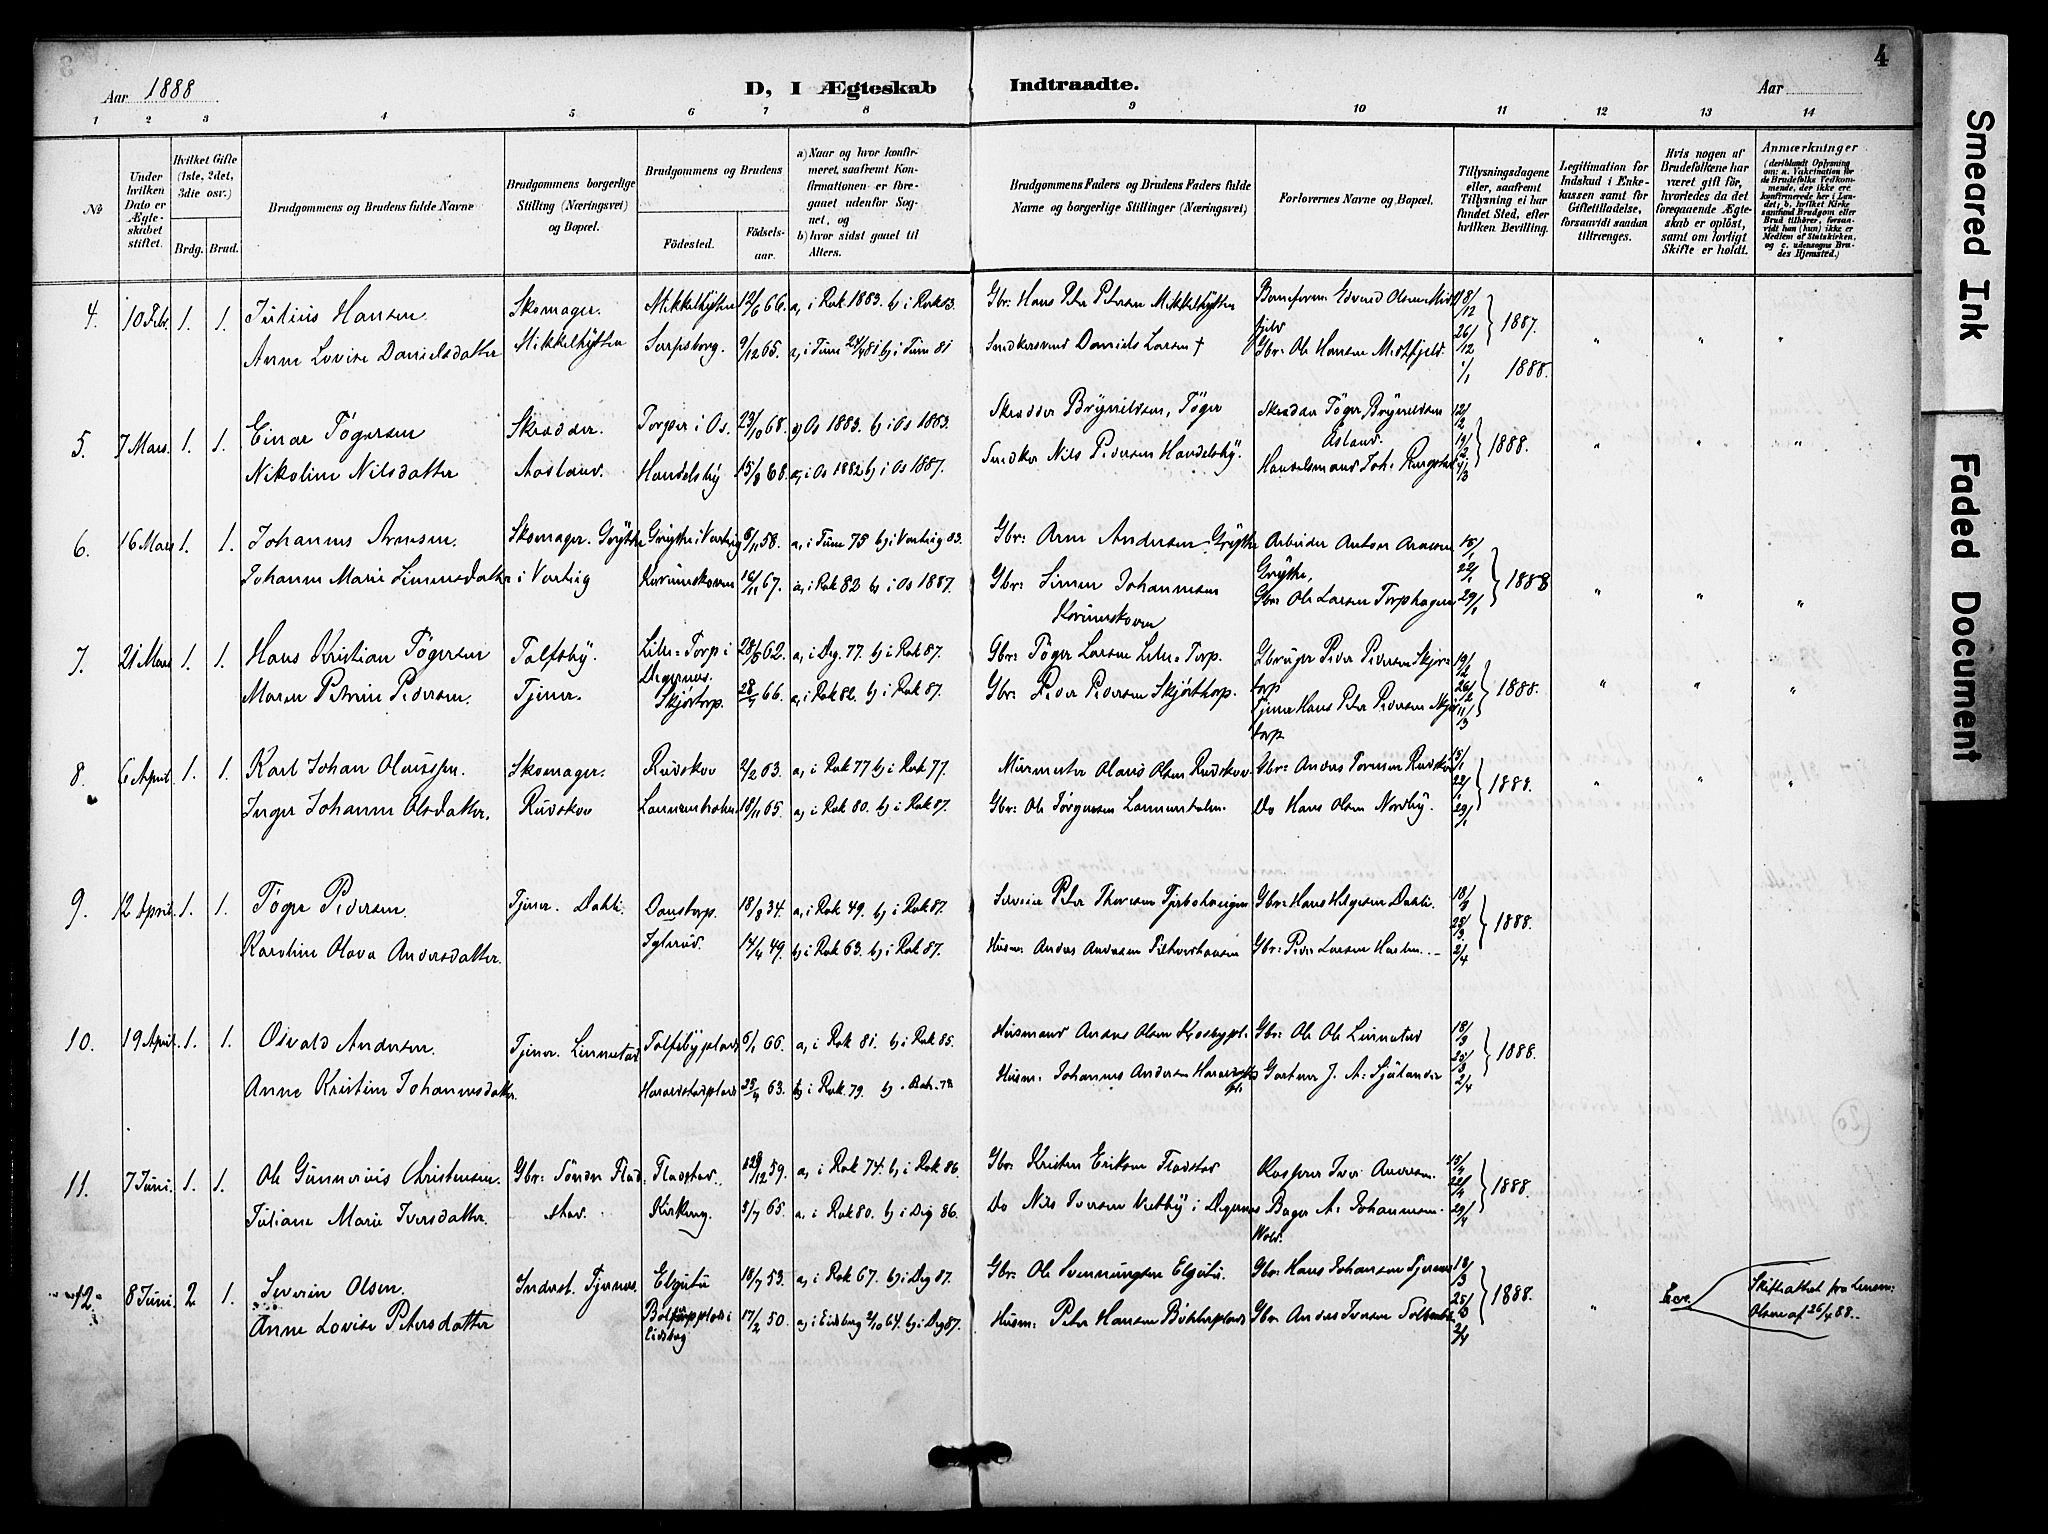 4
Aar 1888 D, I Ægteskab Indtraadte. Aar
1 2 3 4 5 6 7 8 9 10 11 12 13 14
№
Under hvilken Dato er Ægteskabet stiftet.
Hvilket Gifte (1ste, 2det, 3die osv.)
Brdg. Brud.
Brudgommens og Brudens fulde Navne
Brudgommens borgerlige Stilling (Næringsvei) og Bopæl.
Brudgommens og Brudens
Fødested. Fødselsaar.
a) Naar og hvor konfirmeret, saafremt Konfirmationen er foregaaet udenfor Sognet, og
b) hvor sidst gaaet til Alters.
Brudgommens Faders og Brudens Faders fulde Navne og borgerlige Stillinger (Næringsvei)
Forlovernes Navne og Bopæl.
Tillysningsdagene eller, saafremt Tillysning ei har fundet Sted, efter hvilken Bevilling.
Legitimation for Indskud i Enkekassen samt for Giftetilladelse, forsaavidt saadan tiltrænges.
Hvis nogen af Brudefolkene har været gift før, hvorledes da det foregaaende Ægteskab er opløst, samt om lovligt Skifte er holdt.
Anmærkninger (deriblandt Oplysning om: a. Vakcination for de Brudefolks Vedkommende, der ikke ere konfirmerede her i Landet; b. hvilket Kirkesamfund Brudgom eller Brud tilhører, forsaavidt han (hun) ikke er Medlem af Statskirken, og c. udensogns Brudes Hjemsted.)
4. 10 Febr. 1. 1. Julius Hansen. Skomager. Mikkelhytten 12/6 66. a, i Rak. 1883. b, i Rak 83. Gbr. Hans Peter Petersen Mikkelhytten Edvard Olsen 18/12
Anne Lovise Danielsdatter Mikkelhytten Sarpsborg. 9/12 65. a, i Tune 24/4 81 b, i Tune 81 Snedkersvend Daniels Larsen † Gbr. Ole Hansen Midtfjeld. 26/12 1887.
1/1 1888.
5. 7 Mars. 1. 1. Einar Tøgersen Skrædder. Torper i Os. 23/10 68. a, Os 1883. b, i Os 1883. Skrædder Brynildsen, Tøger Skrædder Tøger Brynildsen 12/2
Aaslund. 19/2 1888. "
Nikoline Nilsdatter Aaslund. Handelsby 15/8 68. a, i Os 1882 b, i Os 1887. Snedker Nils Pedersen Handelsby. Handelsmand Joh. 4/3
6. 16 Mars 1. 1. Johannes Arnesen. Skomager. Grytte Grytte i Varteig 5/11 58. a, i Tune 75 b, i Varteig 83. Gbr. Arne Andersen Grytte Arbeider Anton Arnesen 15/1
Grytte, 22/1 1888 "
Johanne Marie Simensdatter i Varteig 16/11 67. a, i Rak 82 b, i Os 1887. Gbr. Simen Johannesen Gbr. Ole Larsen Torphagen 29/1
7. 21 Mars 1. 1. Hans Kristian Tøgersen Tolfsby. Lille-Torp i Degernes. 28/5 62. a, i Deg. 77. b, i Rak 87. Gbr. Tøger Larsen Lille-Torp. Gbruger Peder Pedersen Skjørtorp 19/2
Maren Petrine Pedersen. Tjener. Skjørtorp. 28/7 66. a, i Rak 82. b, i Rak 87. Gbr. Peder Pedersen Skjørttorp. Tjener Hans Peter Pedersen Skjørtorp 26/2 11/3 1888. "
8. 6 April. 1. 1. Karl Johan Olaussen. Skomager. Rudskov 2/2 63. a, i Rak 77 b, i Rak 77. Murmester Olaus Olsen Rudskov. Gbr. Anders Rudskov 15/1
Inger Johanne Olsdatter. Rudskov 18/11 65. a, i Rak 80. b, i Rak 87. Gbr. Ole Jørgensen Do Hans Olsen Nordby. 22/1 29/1 1888. "
9. 12 April. 1. 1. Tøger Pedersen. Tjener. Dahle. Danstorp. 18/3 34. a, i Rak 49. b, i Rak 87. Peder Gbr. Hans Helgesen Dahle. 18/3
Karoline Olava Andersdatter. 14/4 49. b, i Rak 63. b, i Rak 87. Husm. Anders Andersen Gbr. Peder Larsen 25/3 2/4 1888.
10. 19 April. 1. 1. Osvald Andersen. Tjener. Linnestad Tolfsbyplads 6/1 66. a, i Rak 81. b, i Rak 85. Husmand Anders Olsen Gbr. Ole Ole Linnestad 18/3
Anne Kristine Johannesdatter. 25/4 63. b, i Rak. 79. b, i Rak. 78 Husm. Johannes Andersen Gartner J. A. Sjølander 25/3 2/4 1888.
11. 7 Juni. 1. 1. Ole Gunnerius Christensen. Gbr. Søndre Fladstad. Fladstad. 28/12 59. a, i Rak 74. b, i Rak 86. Gbr. Kristen Eriksen Fladstad Iver Andersen. 15/4
Juliane Marie Iversdatter. Kirkeng. 5/7 65. a. i Rak 80. b, i Deg 86. Do Nils Iversen Vestby i Degernes Bager A. Johannesen. 22/4 29/4 1888.
12. 8 Juni. 2 1. Severin Olsen. Inderst. Tjernes. 18/7 53. a, i Rak 67. b, i Deg 87. Gbr. Ole Svenningsen Gbr. Hans Johansen 18/3
Anne Lovise Petersdatter i Eidsberg 17/2 50. a, i Eidsberg 2/10 64. b, i Deg 87. Husm. Peter Hansen Gbr. Anders Iversen 25/3 2/4 1888. "
Skifteattest fra Lensm.
Olsen af 25/4 88.
20
Smeared Ink
Faded Document